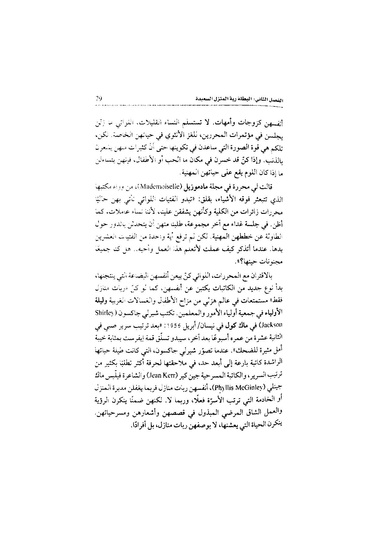 الفصل الثاني: البطلة ربة المنزل السعيدة 79
أنفسهن كزوجات وأمهات. لا تستسلم النساء القليلات، اللواتي ما زلن
يجلسن في مؤتمرات المحررين، للغز الأنثوي في حياتهن الخاصة. لكن،
تلكم هي قوة الصورة التي ساعدن في تكوينها حتى أن كثيرات منهن يشعرن
بالذنب. وإذا كنّ قد خسرن في مكان ما الحب أو الأطفال، فإنهن يتساءلن
ما إذا كان اللوم يقع على حياتهن المهنية.
قالت لي محررة في مجلة مادموزيل (Mademoiselle)، من وراء مكتبها
الذي تتبعثر فوقه الأشياء، بقلق: «تبدو الفتيات اللواتي نأتي بهن حاليًا
محررات زائرات من الكلية وكأنهن يشفقن علينا، لأننا نساء عاملات، كما
أظن. في جلسة غداء مع آخر مجموعة، طلبنا منهن أن يتحدثن بالدور حول
الطاولة عن خططهن المهنية. لكن لم ترفع أية واحدة من الفتيات العشرين
يدها. عندما أتذكر كيف عملت لأتعلم هذا العمل وأحبه.. هل كنا جميعًا
مجنونات حينها؟».
بالاقتران مع المحررات، اللواتي كنّ يبعن أنفسهن البضاعة التي ينتجنها،
بدأ نوع جديد من الكاتبات يكتبن عن أنفسهن، كما لو كنّ «ربات منازل
فقط» مستمتعات في عالم هزلي من مزاح الأطفال والغسالات الغريبة وليلة
الأولياء في جمعية أولياء الأمور والمعلمين. تكتب شيرلي جاكسون (Shirley
Jackson) في ماك كول في نيسان/ أبريل 1956: «بعد ترتيب سرير صبي في
الثانية عشرة من عمره أسبوعًا بعد آخر، سيبدو تسلّق قمة إيفرست بمثابة خيبة
أمل مثيرة للضحك». عندما تصوّر شيرلي جاكسون، التي كانت طيلة حياتها
الراشدة كاتبة بارعة إلى أبعد حد، في ملاحقتها لحرفة أكثر تطلبًا بكثير من
ترتيب السرير، والكاتبة المسرحية جين كير (Jean Kerr) والشاعرة فيليس ماك
جينلي (Phyllis McGinley)، أنفسهن ربات منازل، فربما يغفلن مدبرة المنزل
أو الخادمة التي ترتب الأسرّة فعلًا، وربما لا. لكنهن ضمنًا ينكرن الرؤية
والعمل الشاق المرضي المبذول في قصصهن وأشعارهن ومسرحياتهن.
ينكرن الحياة التي يعشنها، لا بوصفهن ربات منازل، بل أفرادًا.